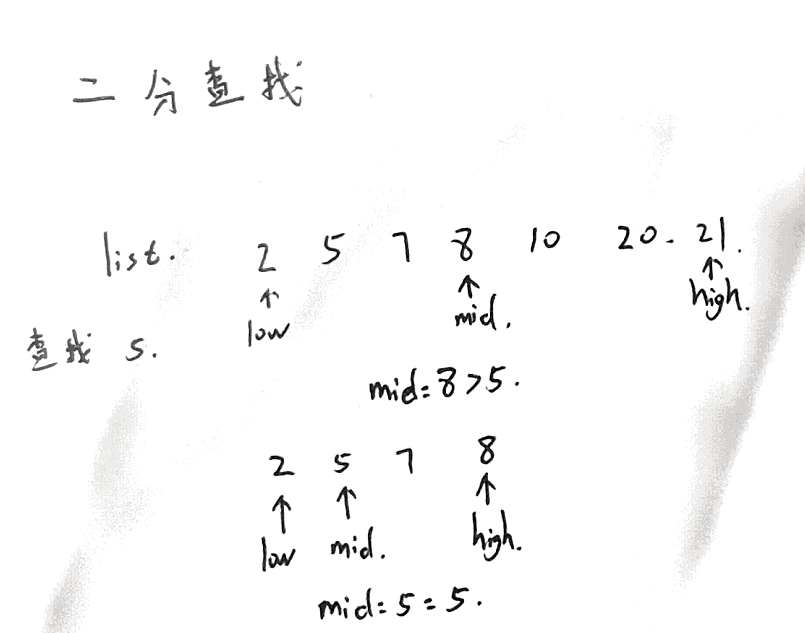 二分查找
list. 2 5 7 8 10 20. 21.
low mid. high.
查找 5.
mid=8>5.
2 5 7 8
low mid. high.
mid=5=5.